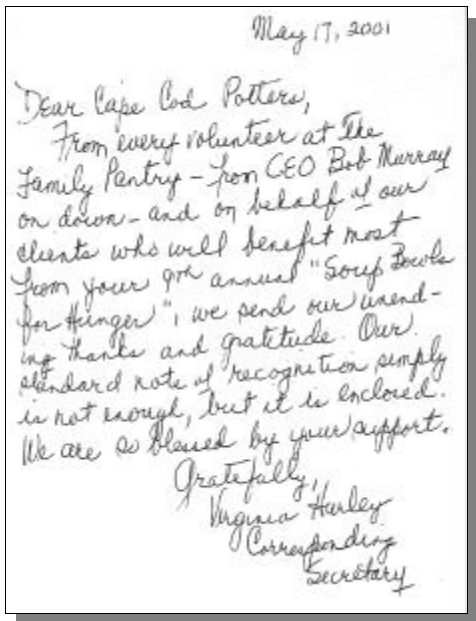 May 17, 2001
Dear Cape Cod Potters,
From every volunteer at The
Family Pantry - from CEO Bob Murray
on down - and on behalf of our
clients who will benefit most
from your 9th annual "Soup Bowls
for Hunger", we send our unend-
ing thanks and gratitude. Our
standard note of recognition simply
is not enough, but it is enclosed.
We are so blessed by your support.
Gratefully,
Virginia Hurley
Corresponding
Secretary